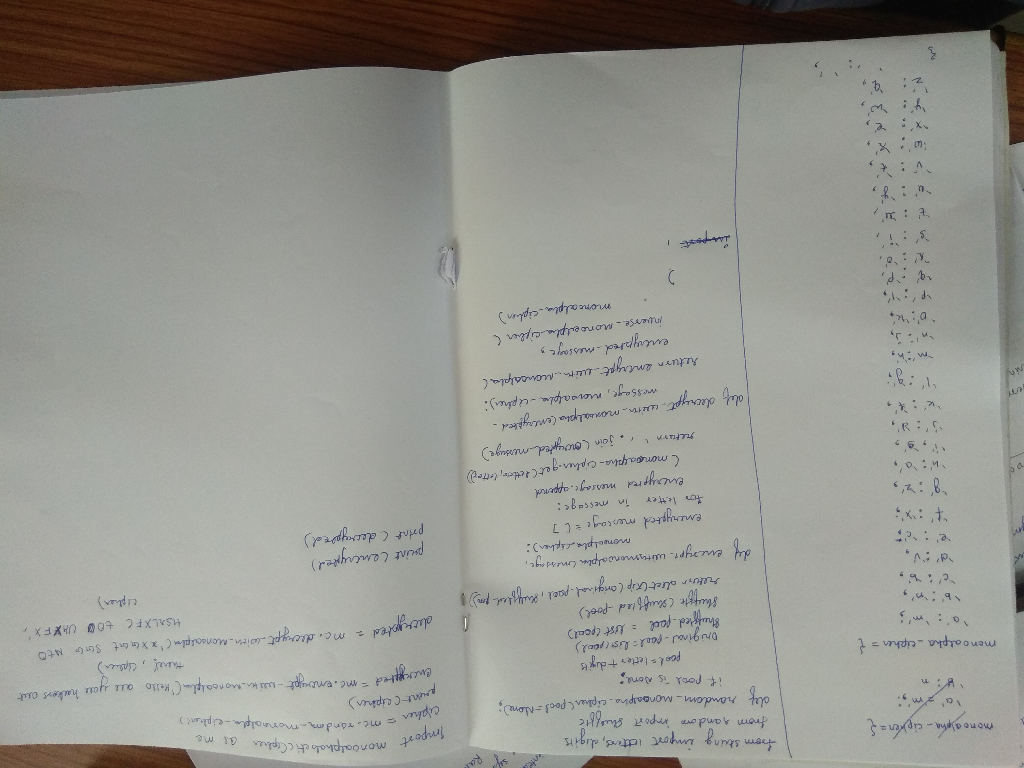 monoalpha-cipher = {
'a' = 'm',
'b' : 'n
monoalpha-cipher = {
'a' : 'm',
'b' : 'n',
'c' : 'b',
'd' : 'v',
'e' : 'c',
'f' : 'x',
'g' : 'z',
'h' : 'a',
'i' : 's',
'j' : 'd',
'k' : 'f',
'l' : 'g',
'm' : 'h',
'n' : 'j',
'o' : 'k',
'p' : 'l',
'q' : 'p',
'r' : 'o',
's' : 'i',
't' : 'u',
'u' : 'y',
'v' : 't',
'w' : 'r',
'x' : 'e',
'y' : 'w',
'z' : 'q',
' ' : ' ',
}
from string import letters, digits
from random import shuffle
def random-monoalpha-cipher (pool=None):
if pool is None:
pool = letters + digits
original-pool = list (pool)
shuffled-pool = list (pool)
shuffle (shuffled-pool)
return dict (zip (original-pool, shuffled-pool))
def encrypt-with-monoalpha (message,
monoalpha-cipher):
encrypted message = [ ]
for letter in message:
encrypted message.append
(monoalpha-cipher.get (letter, letter))
return ' '. join (encrypted-message)
def decrypt-with-monoalpha (encrypted-
message, monoalpha-cipher):
return encrypt-with-monoalpha (
encrypted-message,
inverse-monoalpha-cipher (
monoalpha-cipher)
)
import
Import monoalphabeticCipher as mc
cipher = mc.random-monoalpha-cipher()
print (cipher)
encrypted = mc.encrypt-with-monoalpha ('Hello all you hackers out
there', cipher)
decrypted = mc.decrypt-with-monoalpha
cipher)
print (encrypted)
print (decrypted)